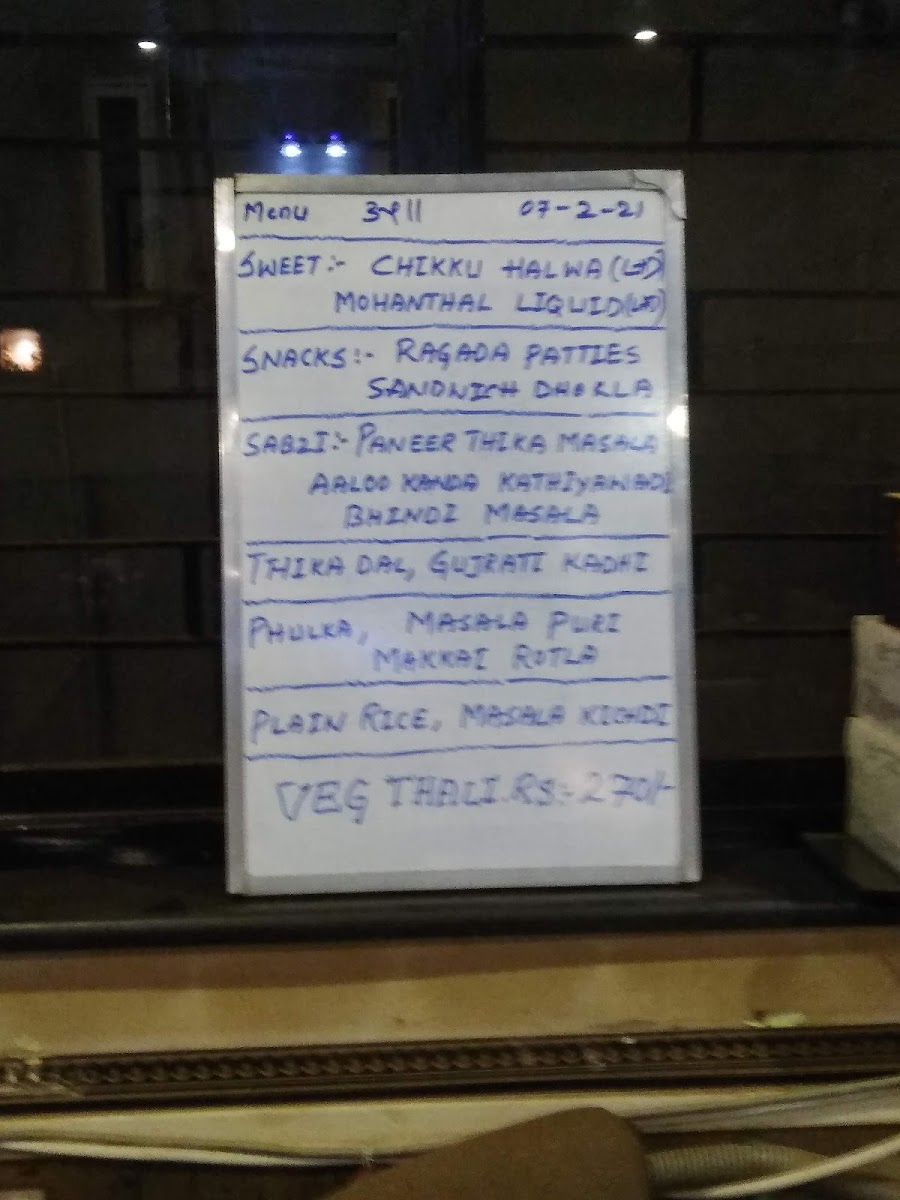 Menu 07-2-21
SWEET:- CHIKKU HALWA (LTD)
MOHANTHAL LIQUID (LTD)
SNACKS:- RAGADA PATTIES
SANDWICH DHOKLA
SABZI:- PANEER THIKA MASALA
AALOO KANDA KATHIYAWADI
BHINDI MASALA
THIKA DAL, GUJRATI KADHI
PHULKA, MASALA PURI
MAKKAI ROTLA
PLAIN RICE, MASALA KICHDI
VEG THALI. RS:- 270/-